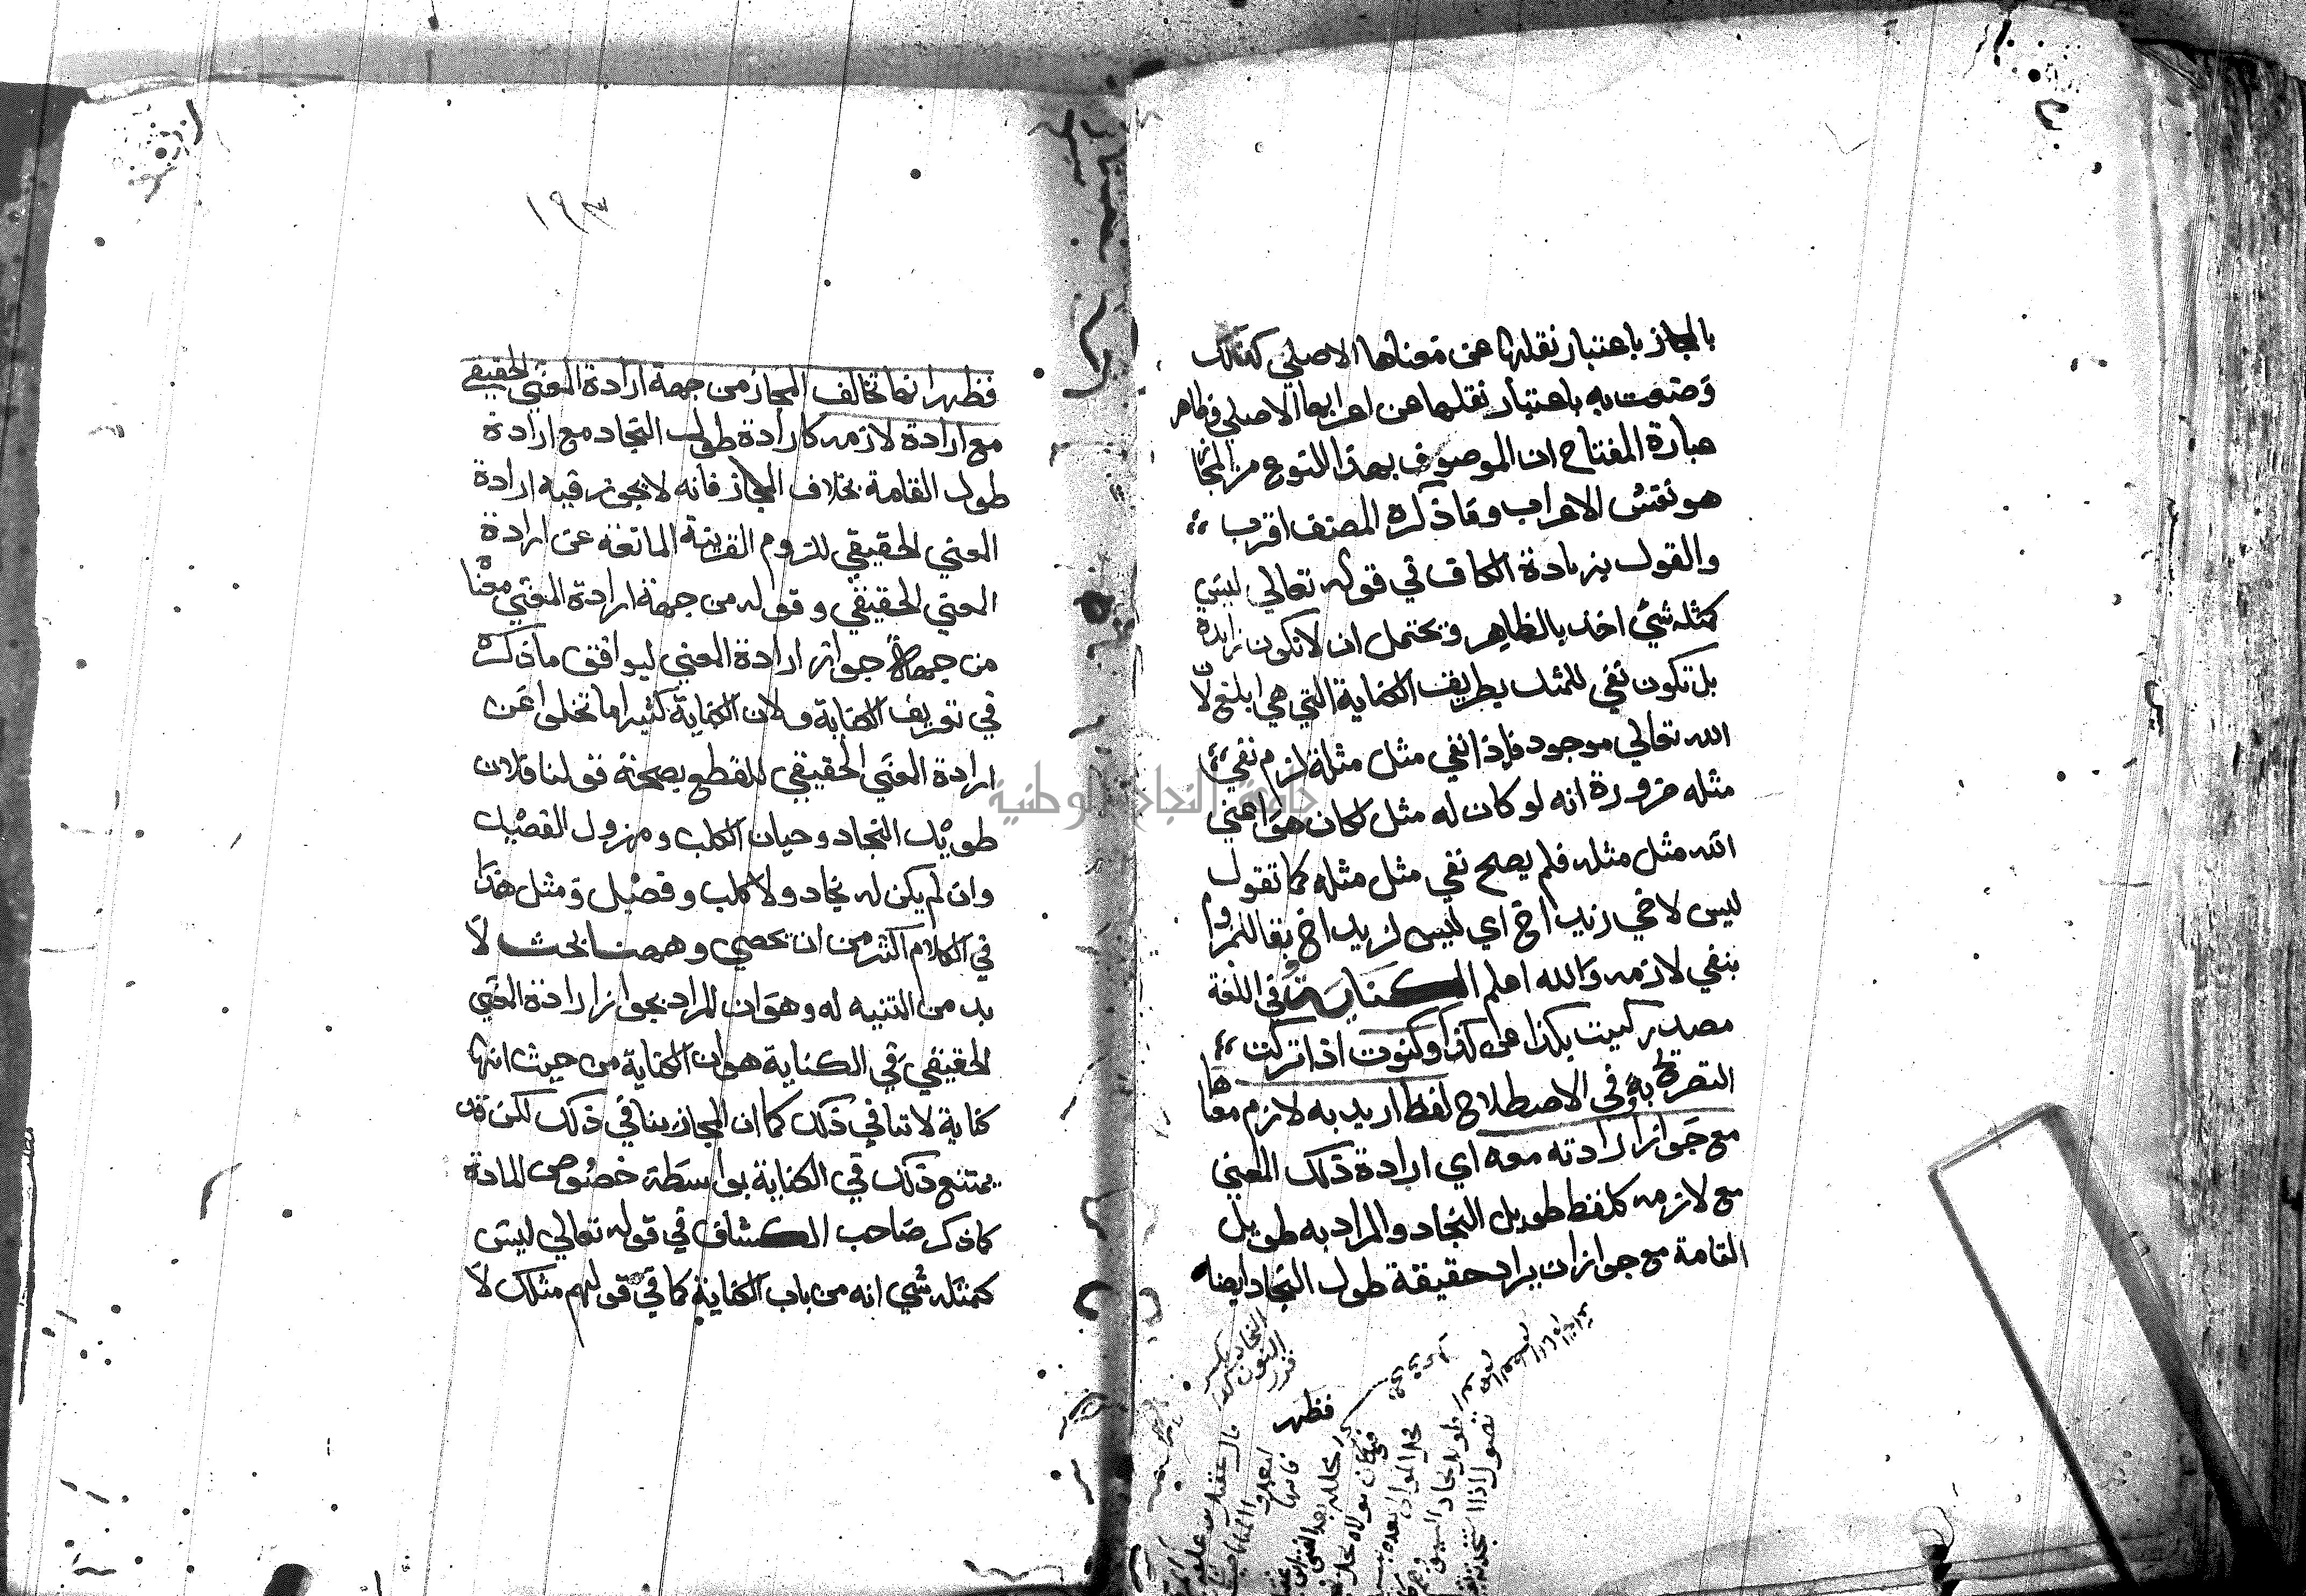 بالمجاز باعتبار نقلها عن معناها الاصلي كذلك
وصفت به باعتبار نقلها عن اعرابها الاصلي وظاهر
عبارة المفتاح ان الموصوف بهذا النوع من المجاز
هو نفس الاعراب وما ذكره المصنف اقرب
والقول بزيادة الكاف في قوله تعالي ليس
كمثله شيء اخذ بالظاهر ويحتمل ان لا تكون زايدة
بل تكون نفي للمثل بطريق الكناية التي هي ابلغ لان
الله تعالي موجود فاذا نفي مثل مثله لزم نفي
مثله ضرورة انه لو كان له مثل لكان هو اعني
الله مثل مثله فلم يصح نفي مثل مثله كما تقول
ليس لاخي زيد اخ اي ليس لزيد اخ نفيا للملزوم
بنفي لازمه والله اعلم الكناية في اللغة
مصدر كنيت بكذا عن كذا وكنوت اذا تركت
التصريح به وفي الاصطلاح لفظ اريد به لازم معناها
مع جواز ارادته معه اي ارادة ذلك المعني
مع لازمه كلفظ طويل النجاد والمراد به طويل
القامة مع جواز ان يراد حقيقة طول النجاد ايضا
فظهر
النجاد بكسر
النون
١٩٣
فظهر انها تخالف المجاز من جهة ارادة المعني الحقيقي
مع ارادة لازمه كارادة طول النجاد مع ارادة
طول القامة بخلاف المجاز فانه لا يجوز فيه ارادة
المعني الحقيقي للزوم القرينة المانعة عن ارادة
المعني الحقيقي وقوله من جهة ارادة المعني معناه
من جهة جواز ارادة المعني ليوافق ما ذكره
في تعريف الكناية ولان الكناية كثيرا ما تخلوا عن
ارادة المعني الحقيقي للقطع بصحة قولنا فلان
طويل النجاد وجبان الكلب ومهزول الفصيل
وان لم يكن له نجاد ولا كلب وفصيل ومثل هذا
في الكلام اكثر من ان تحصي وههنا بحث لا
بد من التنبيه له وهو ان المراد بجواز ارادة المعني
الحقيقي في الكناية هو ان الكناية من حيث انها
كناية لا تنافي ذلك كما ان المجاز ينافي ذلك لكن قد
يمتنع ذلك في الكناية بواسطة خصوص المادة
كما ذكر صاحب الكشاف في قوله تعالي ليس
كمثله شي انه من باب الكناية كما في قولهم مثلك لا
جامعة النجاح الوطنية